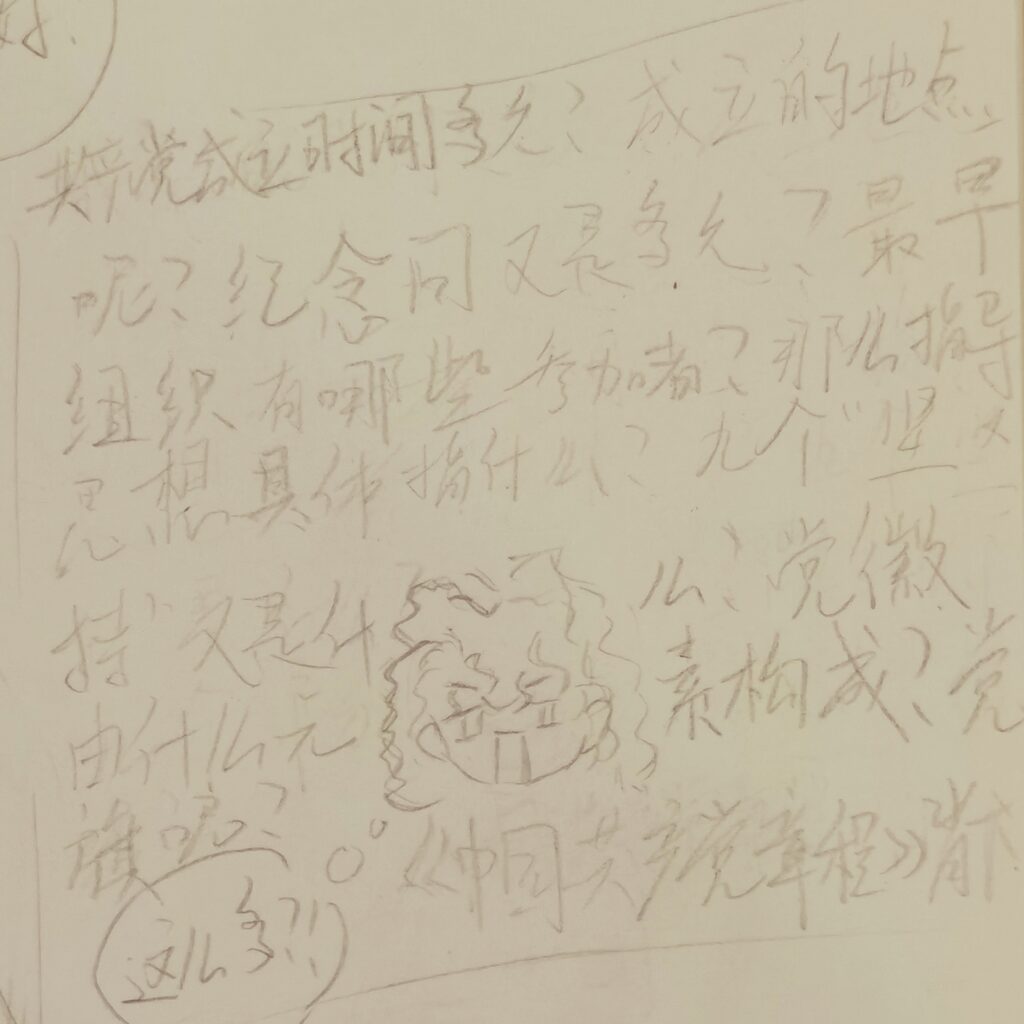 好.
共产党成立时间多久？成立的地点
呢？纪念间又是多久？最早
组织有哪些参加者？那么指导
思想具体指什么？九个“坚
持”又是什么？党徽
由什么元素构成？党
旗呢？《中国共产党章程》背
这么多?!!